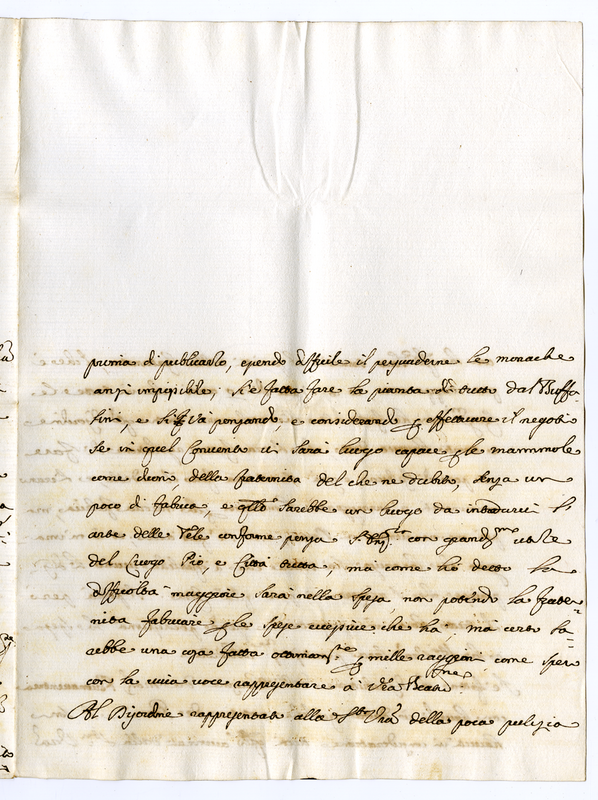 prima di publicarlo, essendo difficile il persuaderne le monache
anzi impossibile; si è fatta fare la pianta di tutto dal Buffa-
lini, e si và pensando e considerando p effettuare il negotio
se in quel Convento vi sarà luogo capace p le mammole
come duoni della fraternita del che ne dubito, senza un
poco di fabrica, e qllo sarebbe un luogo da introdurvi l'
arte delle Tele conforme pensa con grandmo utile
del Luogo Pio, e Città tutta, ma come hò detto la
difficoltà maggiore sarà nella spesa, non potendo la frater-
nita fabricare p le spese eccessive che ha, mà certo sa-
rebbe una cosa fatta p mille raggioni come spero
con la viva voce rappresentare a
Al Disordine rappresentato alla della poca pulizia